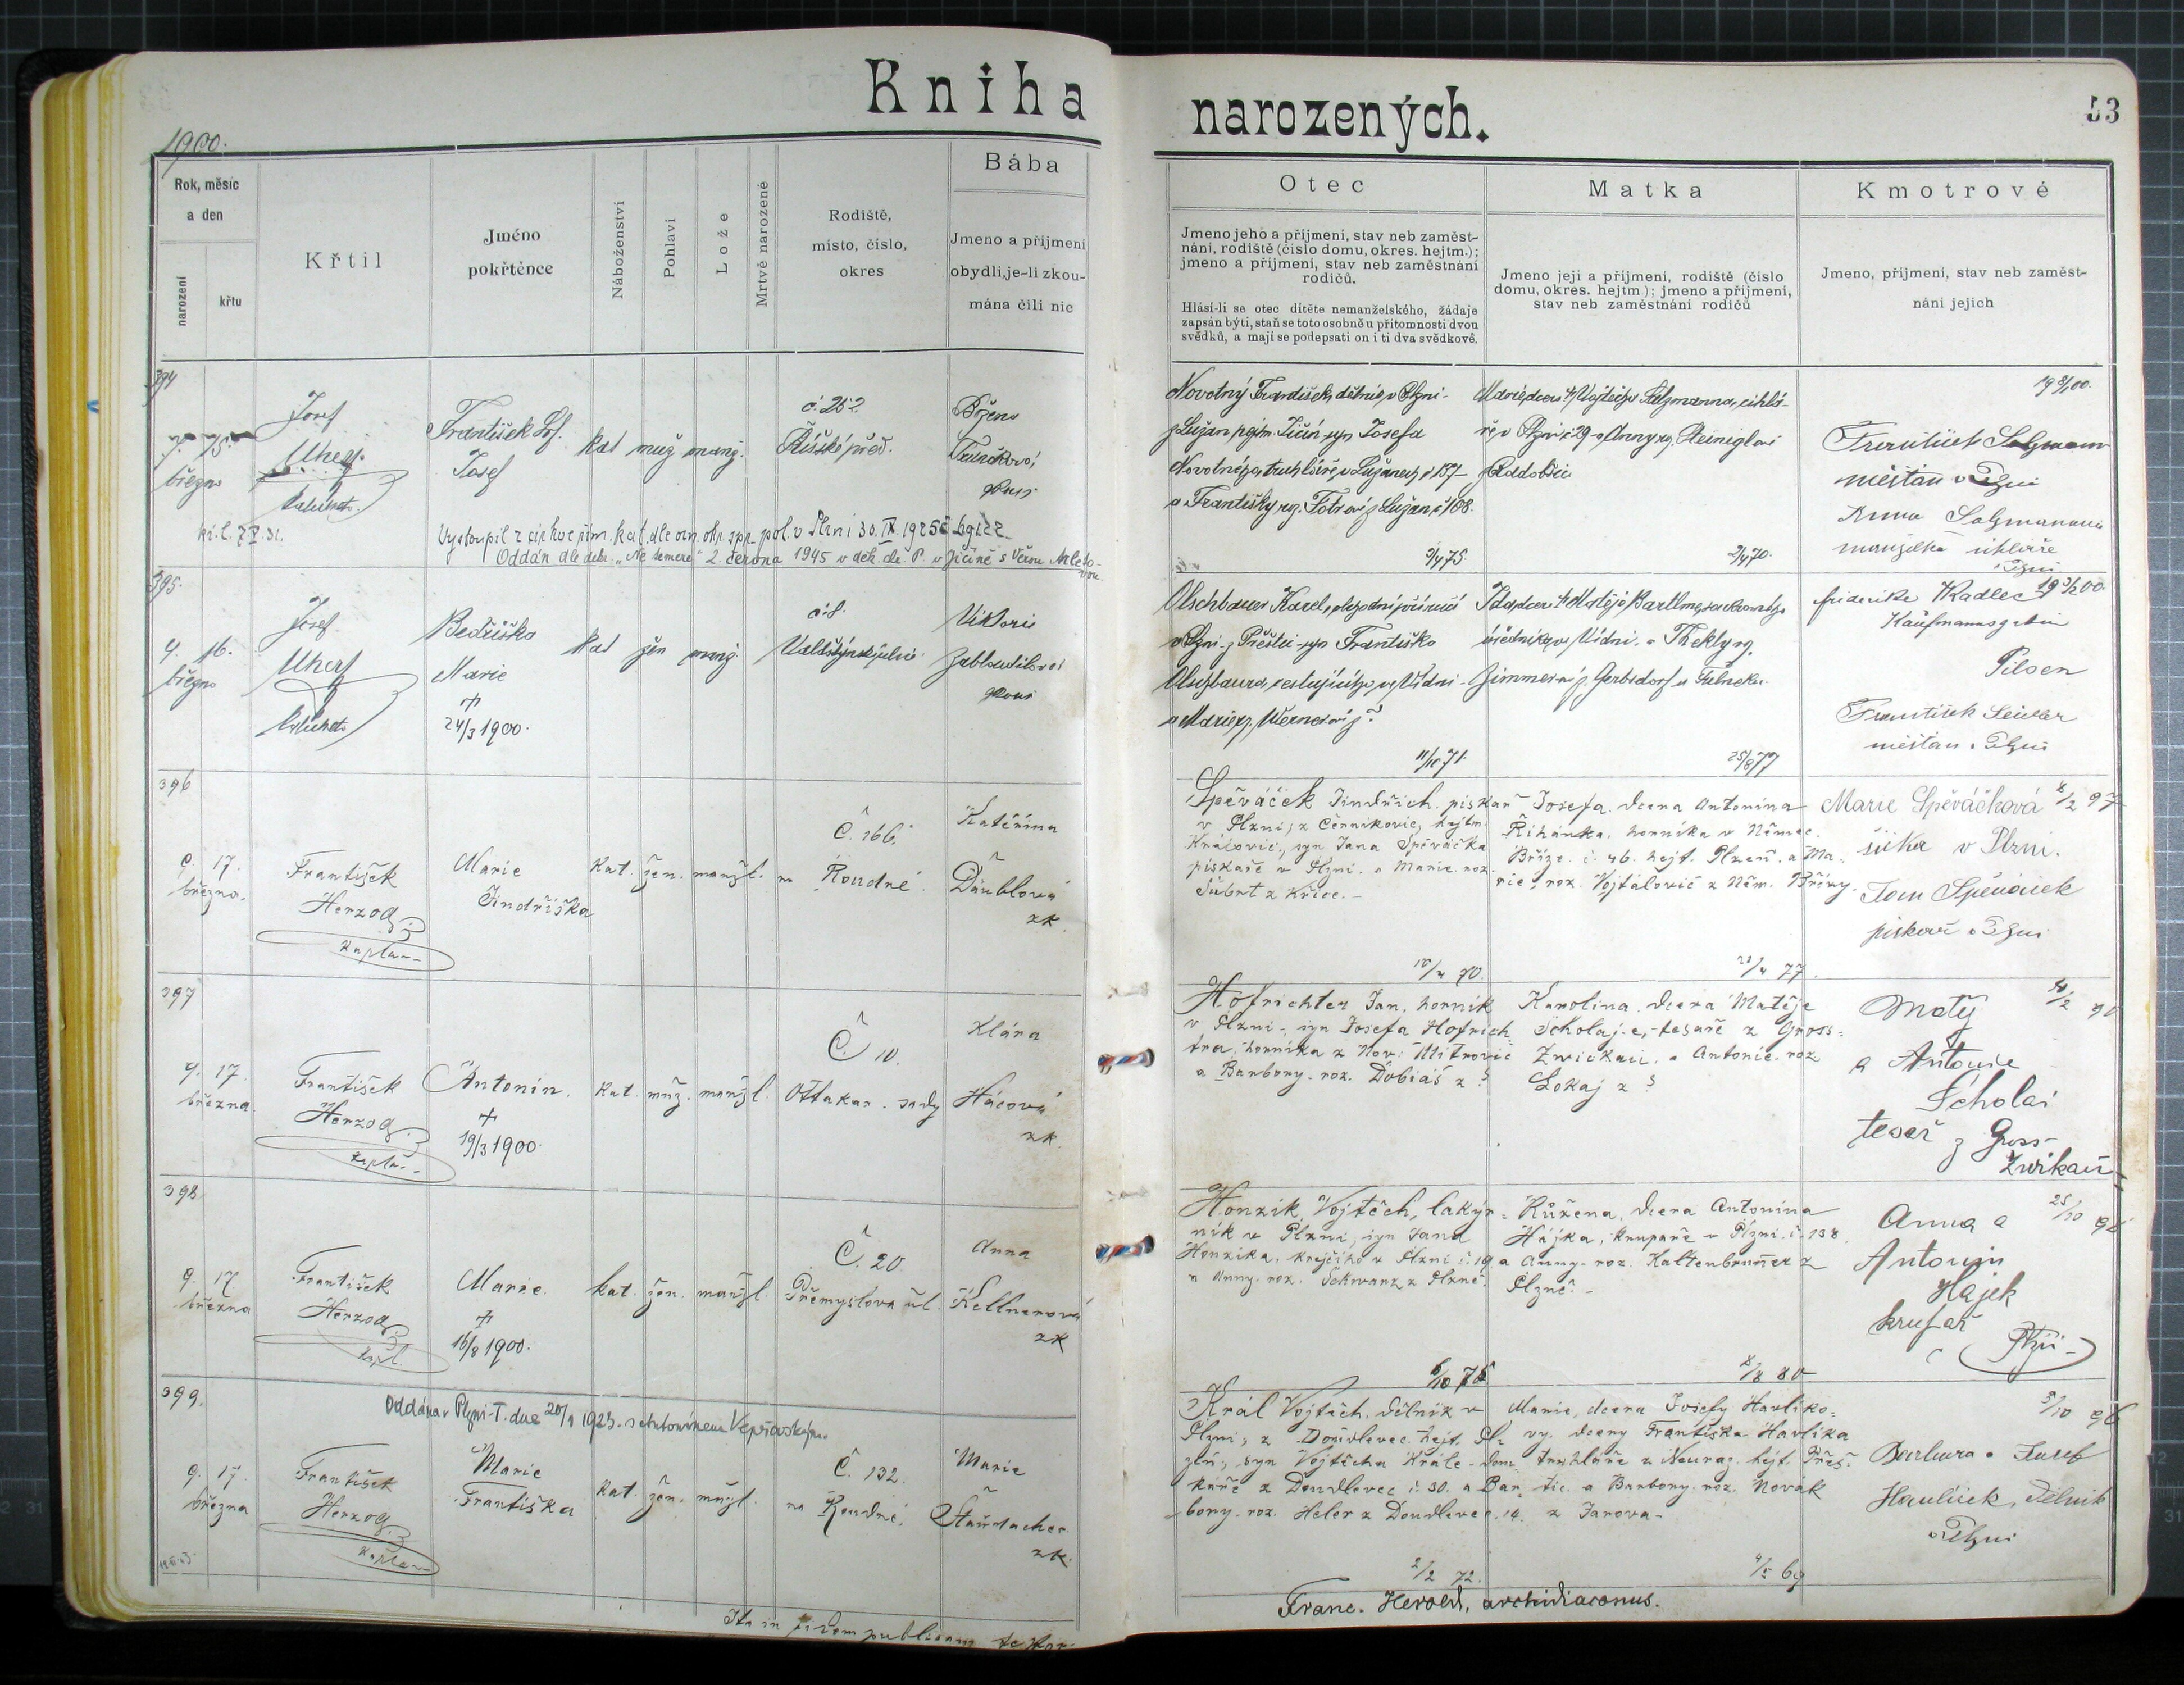 Kniha
narozených.
53
1900.
Rok, měsíc
a den
narození
křtu
Křtil
Jméno
pokřtěnce
Náboženství
Pohlaví
Lože
Mrtvě narozené
Rodiště,
místo, číslo,
okres
Bába
Jmeno a příjmení
obydlí, je-li zkou-
mána čili nic
Otec
Jmeno jeho a příjmení, stav neb zaměst-
nání, rodiště (číslo domu, okres. hejtm.);
jmeno a příjmení, stav neb zaměstnání
rodičů.
Hlásí-li se otec dítěte nemanželského, žádaje
zapsán býti, staň se toto osobně u přítomnosti dvou
svědků, a mají se podepsati on i ti dva svědkové.
Matka
Jmeno její a příjmení, rodiště (číslo
domu, okres. hejtm.); jmeno a příjmení,
stav neb zaměstnání rodičů
Kmotrové
Jmeno, příjmení, stav neb zaměst-
nání jejich
394
7. 15.
března
Josef
Uherf
František
Josef
kat muž manž.
č. 252
Říšské před.
Božena
Novotný František, dělník v Plzni
z Lužan hejtm. Jičín syn Josefa
Novotného, truhláře v Lužanech č 137
a Františky roz. Fotrovi z Lužan č 108.
3/4 75.
2/4 70.
František Salzmann
měšťan v Plzni
Anna Salzmannová
manželka cihláře
Plzni
Vystoupil z církve řím. kat. dle ozn. okr. spr. pol. v Plzni 30. IX. 1925
Oddán dle dekr. „Ne temere“ 2. června 1945 v děk. chr. P. v Jičíně s Věrou
395.
4. 16.
března
Josef
Uherf
Bedřiška
Marie
†
24/3 1900.
kat žen manž.
č. 8.
Valdštýnská ulice
Viktorie
Zabloudilová
Olschbauer Karel, obchodní příručí
v Plzni z Přeštic syn Františka
Olschbaura, cestujícího ve Vídni
a Marie roz. Wernerovi z ?
11/10 71.
úředníka ve Vídni a Thekly roz.
25/8 77
Friderike Kadlec
Kaufmannsgattin
Pilsen
František Seidler
měšťan v Plzni
396
9. 17.
března.
František
Herzog
kaplan
Marie
Jindřiška
kat. žen. manžl.
Č. 166.
na Roudné.
Kateřina
Däublová
zk.
Spěváček Jindřich, pískař
v Plzni, z Černíkovic, hejtm.
Kralovic, syn Jana Spěváčka
pískaře v Plzni a Marie roz.
Šubrt z Křice.
18/4 70.
Josefa, dcera Antonína
Řihánka, horníka v Němec.
Bříze č. 46. hejt. Plzeň, a Ma-
rie, roz. Vojtalovič z Něm. Břízy.
21/4 77.
Marie Spěváčková 8/2 97
šička v Plzni.
Jan Spěváček
pískař v Plzni
397
9. 17.
března.
František
Herzog
kaplan
Antonín.
†
19/3 1900.
kat. muž. manžl.
Č. 10.
Ottakar. sady
Klára
Hácová
zk.
Hofrichter Jan, horník
v Plzni, syn Josefa Hofrich-
tra, horníka z Nov. Mitrovic
a Barbory, roz. Dobiáš z ?
Karolina, dcera Matěje
Scholaj-e, tesaře z Gross-
Zwickau, a Antonie, roz.
Lokaj z ?
Matěj
a Antonie
Scholai
tesař z Gross-
Zwikau
398
9. 17
března
František
Herzog
kapl.
Marie.
†
16/8 1900.
kat. žen. manžl.
Č. 20.
Přemyslova ul.
Anna
Kellnerová
zk
Honzík Vojtěch, lakýr-
ník v Plzni, syn Jana
Honzíka, krejčího v Plzni č. 19
a Anny, roz. Schwarz z Plzně.
6/10 75.
Růžena, dcera Antonína
Hájka, krupaře v Plzni č. 138
a Anny, roz. Kaltenbrunner z
Plzně.
8/8 80
Anna a
Antonín
Hájek
krupař
Plzni
399.
Oddána v Plzni I. dne 20/1 1923. s Antonínem Vepřovským.
9. 17.
března
František
Herzog
kaplan
Marie
Františka
kat. žen. mnžl.
Č. 132.
na Roudné.
Marie
Štaudacher
zk.
Král Vojtěch, dělník v
Plzni, z Doudlevec hejt. Pl-
zeň, syn Vojtěcha Krále dom-
káře z Doudlevec č. 30. a Bar-
bory, roz. Heler z Doudlevec č. 14.
2/2 72.
Marie, dcera Josefy Havlíko-
vy, dcery Františka Havlíka
truhláře z Neuraz, hejt. Přeš-
tic, a Barbory, roz. Novák
z Jarova
4/5 69
Barbora a Josef
Havlíček, dělník
v Plzni
Ita in fidem publicam
Franc. Herold, archidiaconus.